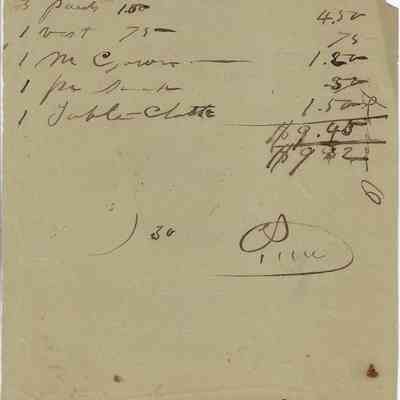 3 pants 1.50 4.50
1 vest 75 75
1 M Gown 1.20
1 pr 50
1 Table Cloth 1.50
$9.45
$9 32
30